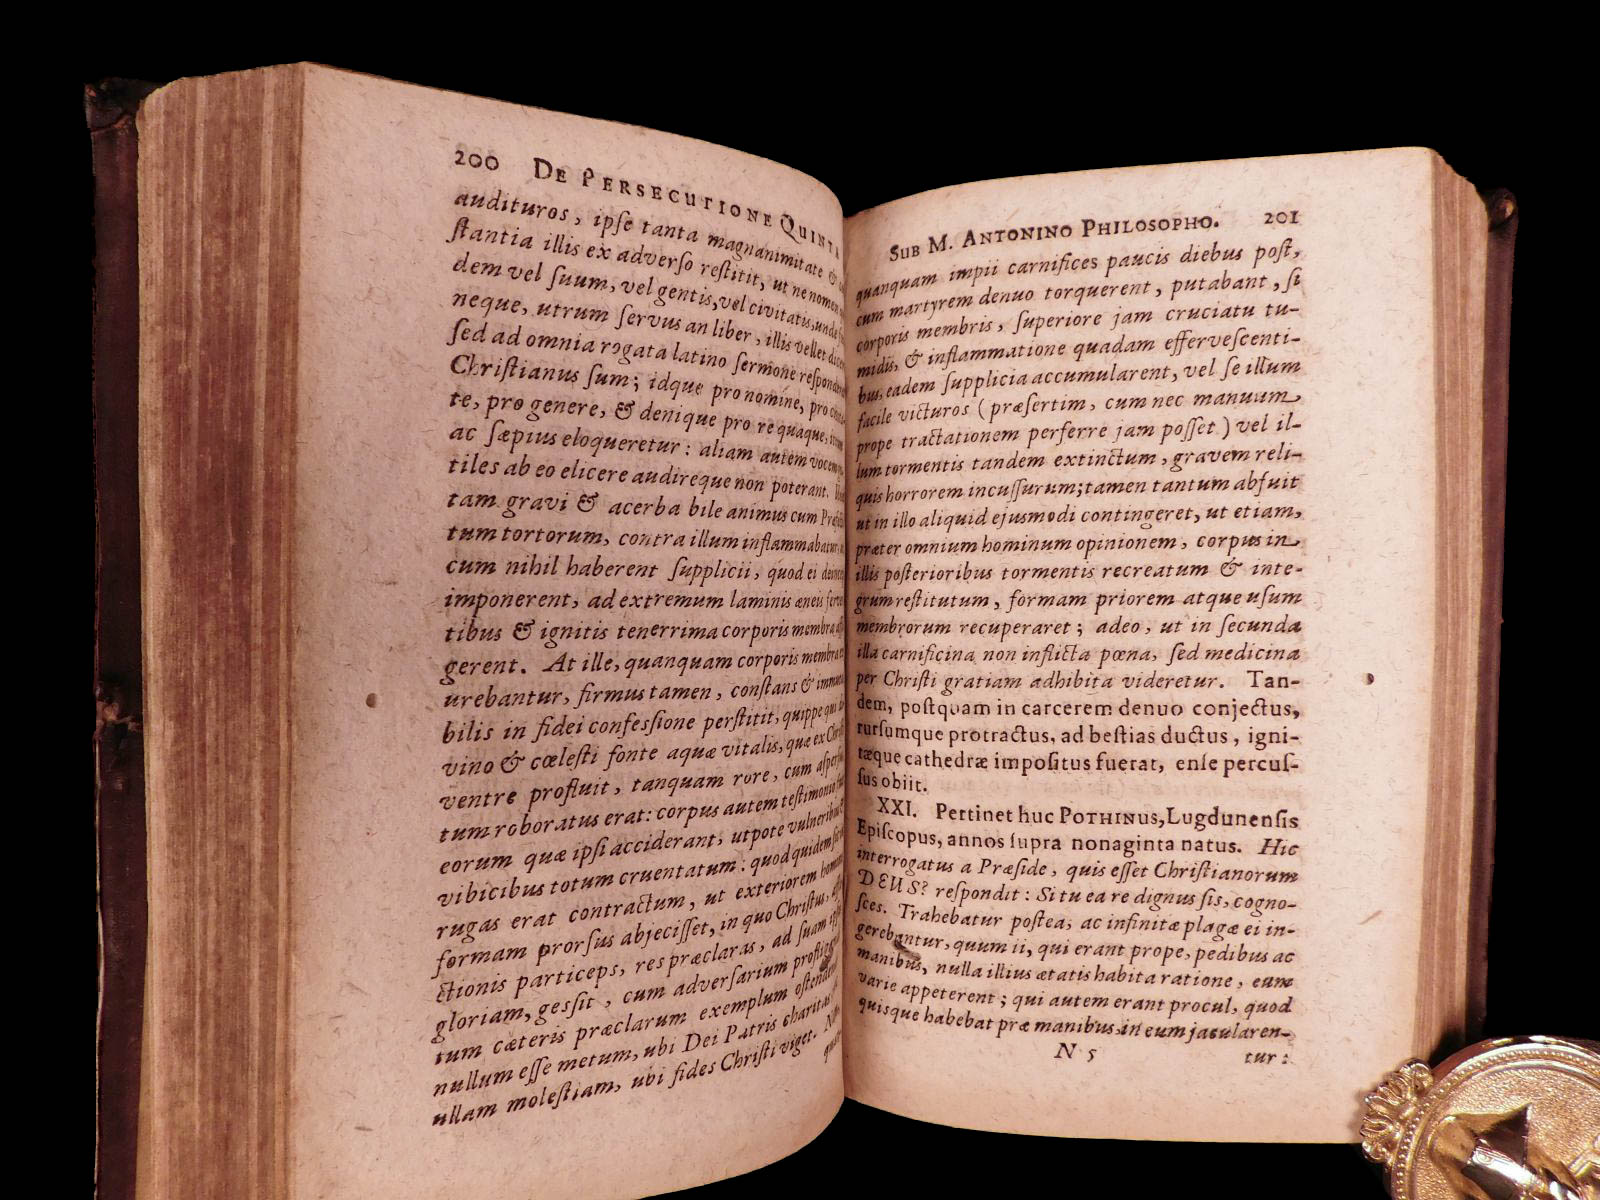 200 DE PERSECUTIONE QUINTA
audituros, ipſe tanta magnanimitate &
ſtantia illis ex adverſo reſtitit, ut ne nomen
dem vel ſuum, vel gentis, vel civitatis, unde
neque, utrum ſervus an liber, illis vellet
ſed ad omnia rogata latino ſermone
Chriſtianus ſum; idque pro nomine, pro
te, pro genere, & denique pro re quaque,
ac ſæpius eloqueretur: aliam autem vocem
tiles ab eo elicere audireque non poterant.
tam gravi & acerba bile animus cum
tum tortorum, contra illum inflammabatur,
cum nihil haberent ſupplicii, quod ei
imponerent, ad extremum laminis æneis
tibus & ignitis tenerrima corporis membra
gerent. At ille, quanquam corporis membra
urebantur, firmus tamen, conſtans &
bilis in fidei confeſſione perſtitit, quippe qui
vino & cœleſti fonte aquæ vitalis, quæ ex
ventre profluit, tanquam rore, cum
tum roboratus erat: corpus autem
eorum quæ ipſi acciderant, utpote
vibicibus totum cruentatum: quod quidem
rugas erat contractum, ut exteriorem
formam prorſus abjeciſſet, in quo Chriſtus,
ctionis particeps, res præclaras, ad ſuam
gloriam, geſſit, cum adverſarium
tum cæteris præclarum exemplum
nullum eſſe metum, ubi Dei Patris charitas
ullam moleſtiam, ubi fides Chriſti viget.
SUB M. ANTONINO PHILOSOPHO. 201
quanquam impii carnifices paucis diebus poſt,
cum martyrem denuo torquerent, putabant, ſi
corporis membris, ſuperiore jam cruciatu tu-
midis, & inflammatione quadam efferveſcenti-
bus, eadem ſupplicia accumularent, vel ſe illum
facile victuros (præſertim, cum nec manuum
prope tractationem perferre jam poſſet) vel il-
lum tormentis tandem extinctum, gravem reli-
quis horrorem incuſſurum; tamen tantum abfuit
ut in illo aliquid ejusmodi contingeret, ut etiam,
præter omnium hominum opinionem, corpus in
illis poſterioribus tormentis recreatum & inte-
grum reſtitutum, formam priorem atque uſum
membrorum recuperaret; adeo, ut in ſecunda
illa carnificina non inflicta pœna, ſed medicina
per Chriſti gratiam adhibita videretur. Tan-
dem, poſtquam in carcerem denuo conjectus,
rurſumque protractus, ad beſtias ductus, igni-
tæque cathedræ impoſitus fuerat, enſe percuſ-
ſus obiit.
XXI. Pertinet huc POTHINUS, Lugdunenſis
Epiſcopus, annos ſupra nonaginta natus. Hic
interrogatus a Præſide, quis eſſet Chriſtianorum
DEUS? reſpondit: Si tu ea re dignus ſis, cogno-
ſces. Trahebatur poſtea, ac infinitæ plagæ ei in-
gerebantur, quum ii, qui erant prope, pedibus ac
manibus, nulla illius ætatis habita ratione, eum
varie appeterent; qui autem erant procul, quod
quisque habebat præ manibus, in eum jacularen-
N 5 tur: